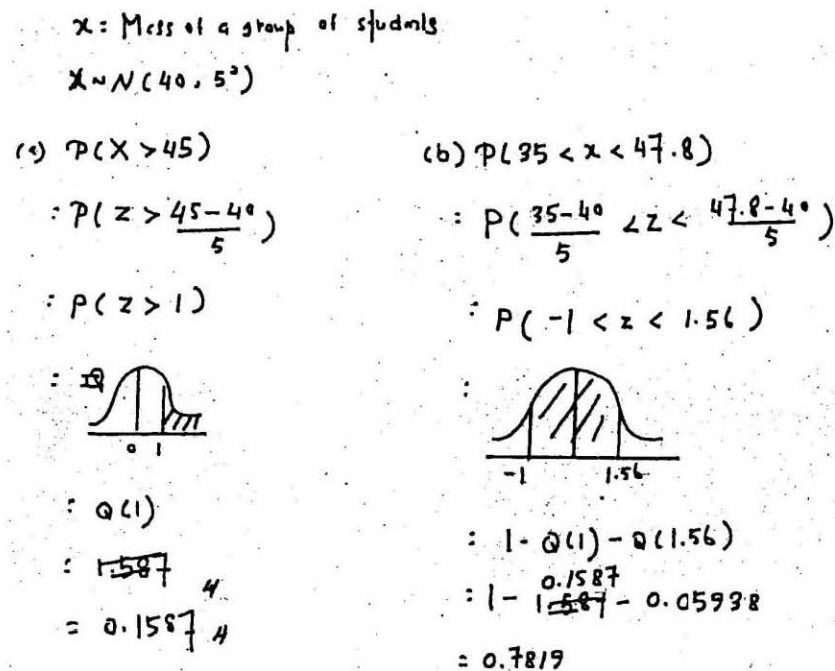 x: Mass of a group of students
X ~ N(40, 5²)
(a) P(X > 45)
: P(z > (45-40)/5)
: P(z > 1)
:
0 1
: Q(1)
: 1.587
= 0.1587
(b) P(35 < x < 47.8)
: P((35-40)/5 < z < (47.8-40)/5)
: P(-1 < z < 1.56)
:
-1 1.56
: 1 - Q(1) - Q(1.56)
0.1587
: 1 - 1.587 - 0.05938
= 0.7819